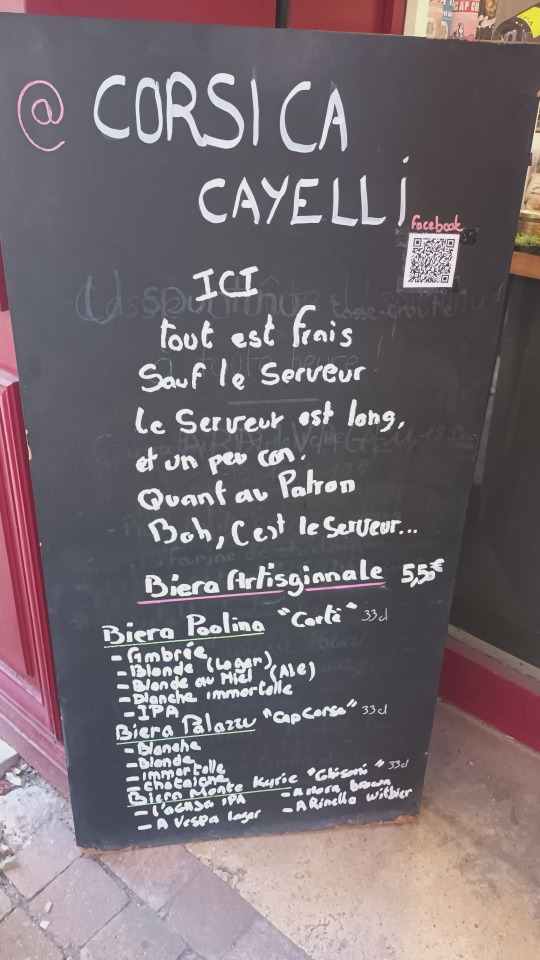 @ CORSICA
CAYELLi
facebook
ICI
tout est frais
Sauf le Serveur
Le Serveur est long,
et un peu con.
Quant au Patron
Bah, C'est le Serveur...
Biera Artisgiannale 5,50€
Biera Paolina "Corté" 33cl
- Ambrée
- Blonde (Lager)
- Blonde au Miel (Ale)
- Blanche immortelle
- IPA
Biera Palazzu "Cap Corse" 33cl
- Blanche
- Blonde
- immortelle
- chataigne
Biera Monte Kyrie "Ghisoni" 33cl
- L'aGASA IPA - A Mora brown
- A Vespa lager - A Rinella witbier